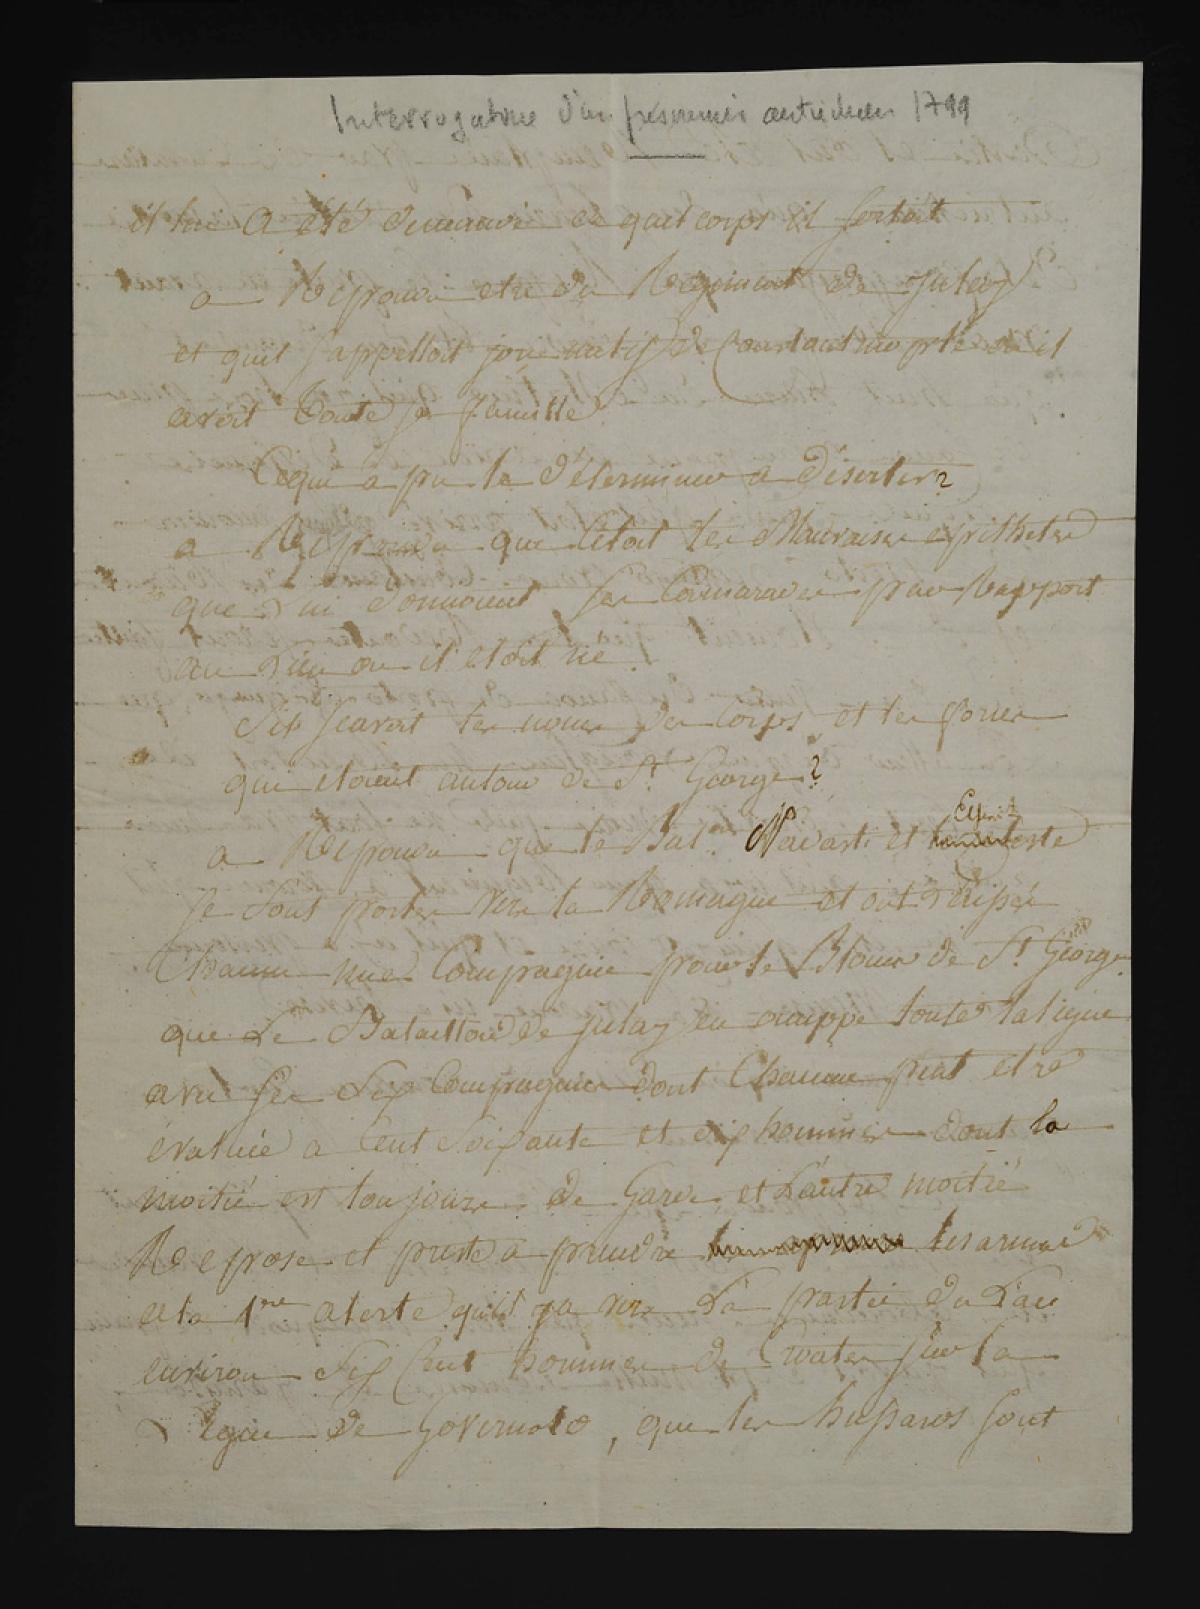 Interrogatoire d'un prisonnier autrichien 1799
il lui a été demandé de quel corps il sortoit
a Répondu etre du Régiment de Julay
et quil s'appelloit natif de Constantinople ou il
avoit toute sa famille
Ce qui a pu le déterminer a déserter?
a Répondu que c'étoit les Mauvaises épithetes
que lui donnoient ses Camarades par Rapport
au Lieu ou il etoit né
S'il scavoit les noms des Corps et les forces
qui etoient autour de St George?
a Répondu que le Bat.on et
Se sont portés vers la Romagne et ont
Chacun une Compagnie pour le Blocus de St George
que Le Bataillon de Julay en occuppe toute la ligne
avec ses Six Compagnies dont Chacune peut etre
évaluée a Cent Soixante et dix hommes dont la
moitié est toujours de Garde et L'autre moitié
Repose et preste a prendre les armes
a la 1re alerte qu'il y a vers La partie du Lac
environ Six Cent hommes de Croates sur la
Digue de Governolo, que les hussards sont